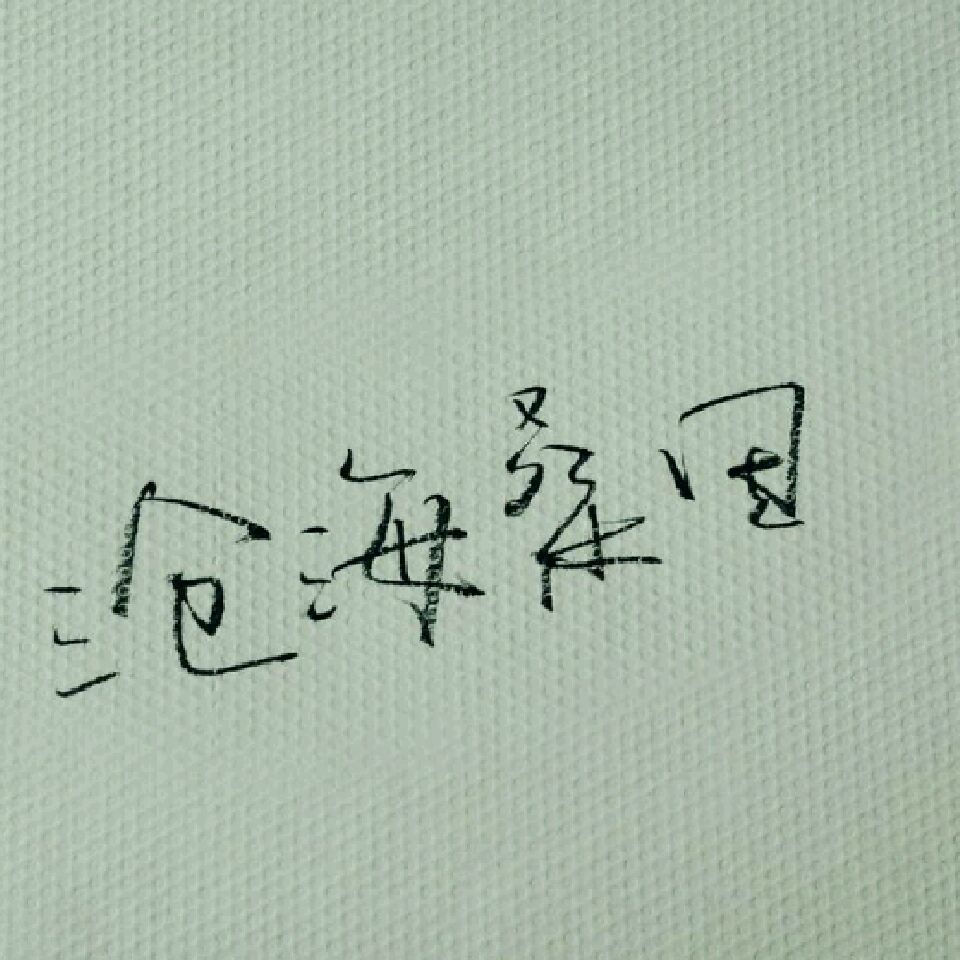 沧海桑田